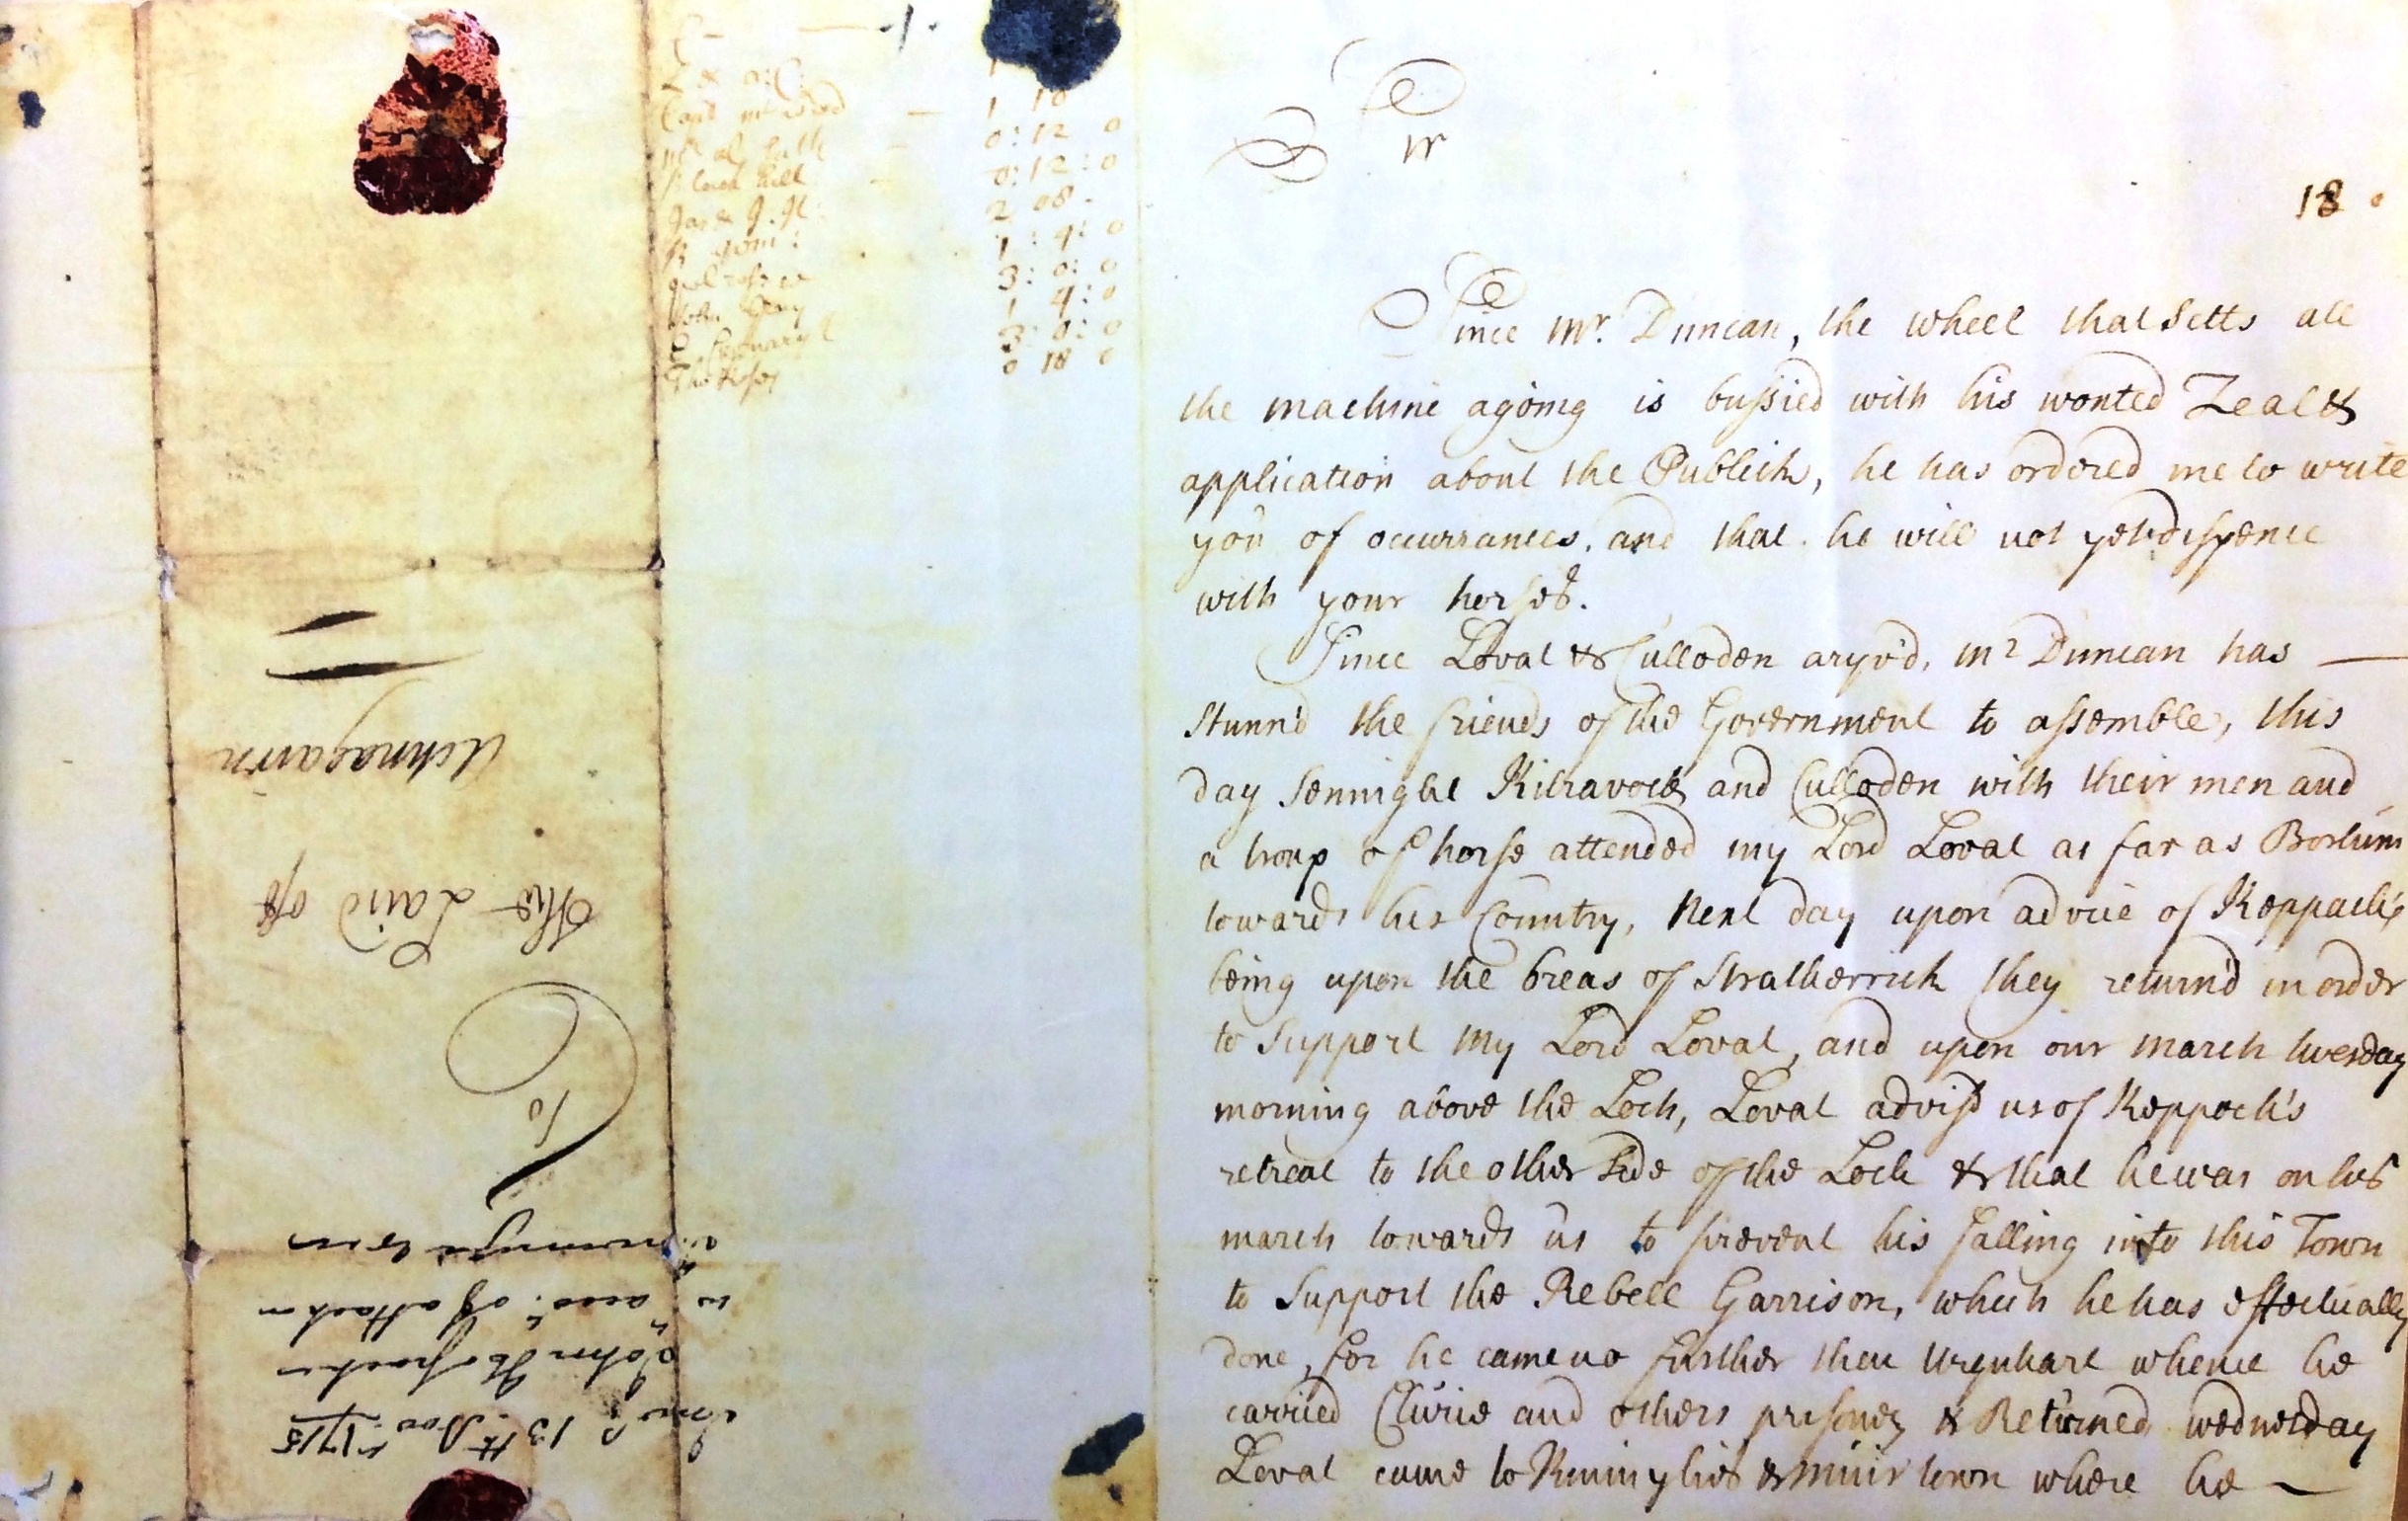 1
Capt
0:12 0
0:12:0
2 08 -
1:4:0
3:0:0
John Gray 1 4:0
3:0:0
Tho Ross 0 18 0
To
The Laird off
Achnagairn
Inrs. 13th Nov. 1715
John
acct. of attack
Sir
18
Since Mr. Duncan, the wheel that Setts all
the machine agoing is bussied with his wonted Zeal &
application about the Publick, he has ordered me to write
you of occurrances, and that he will not yet dispence
with your horses.
Since Lovat & Culloden aryv'd, Mr Duncan has —
Stunn'd the friends of the Government to assemble, this
day Sennight Kilravock and Culloden with their men and
a troup of horse attended my Lord Lovat as far as Borlum
towards his Country, Next day upon advice of Keppach's
being upon the breas of Stratherrick they return'd in order
to Support My Lord Lovat, and upon our march tuesday
morning above the Loch, Lovat advis'd us of Keppoch's
retreat to the other side of the Loch & that he was on his
march towards us to prevent his falling into this Town
to Support the Rebell Garrison, which he has effectually
done, for he came no further then Urquhart whence he
carried Clunie and others prisoners & Returned wednesday
Lovat came to Kinmylies & muirtown where he —